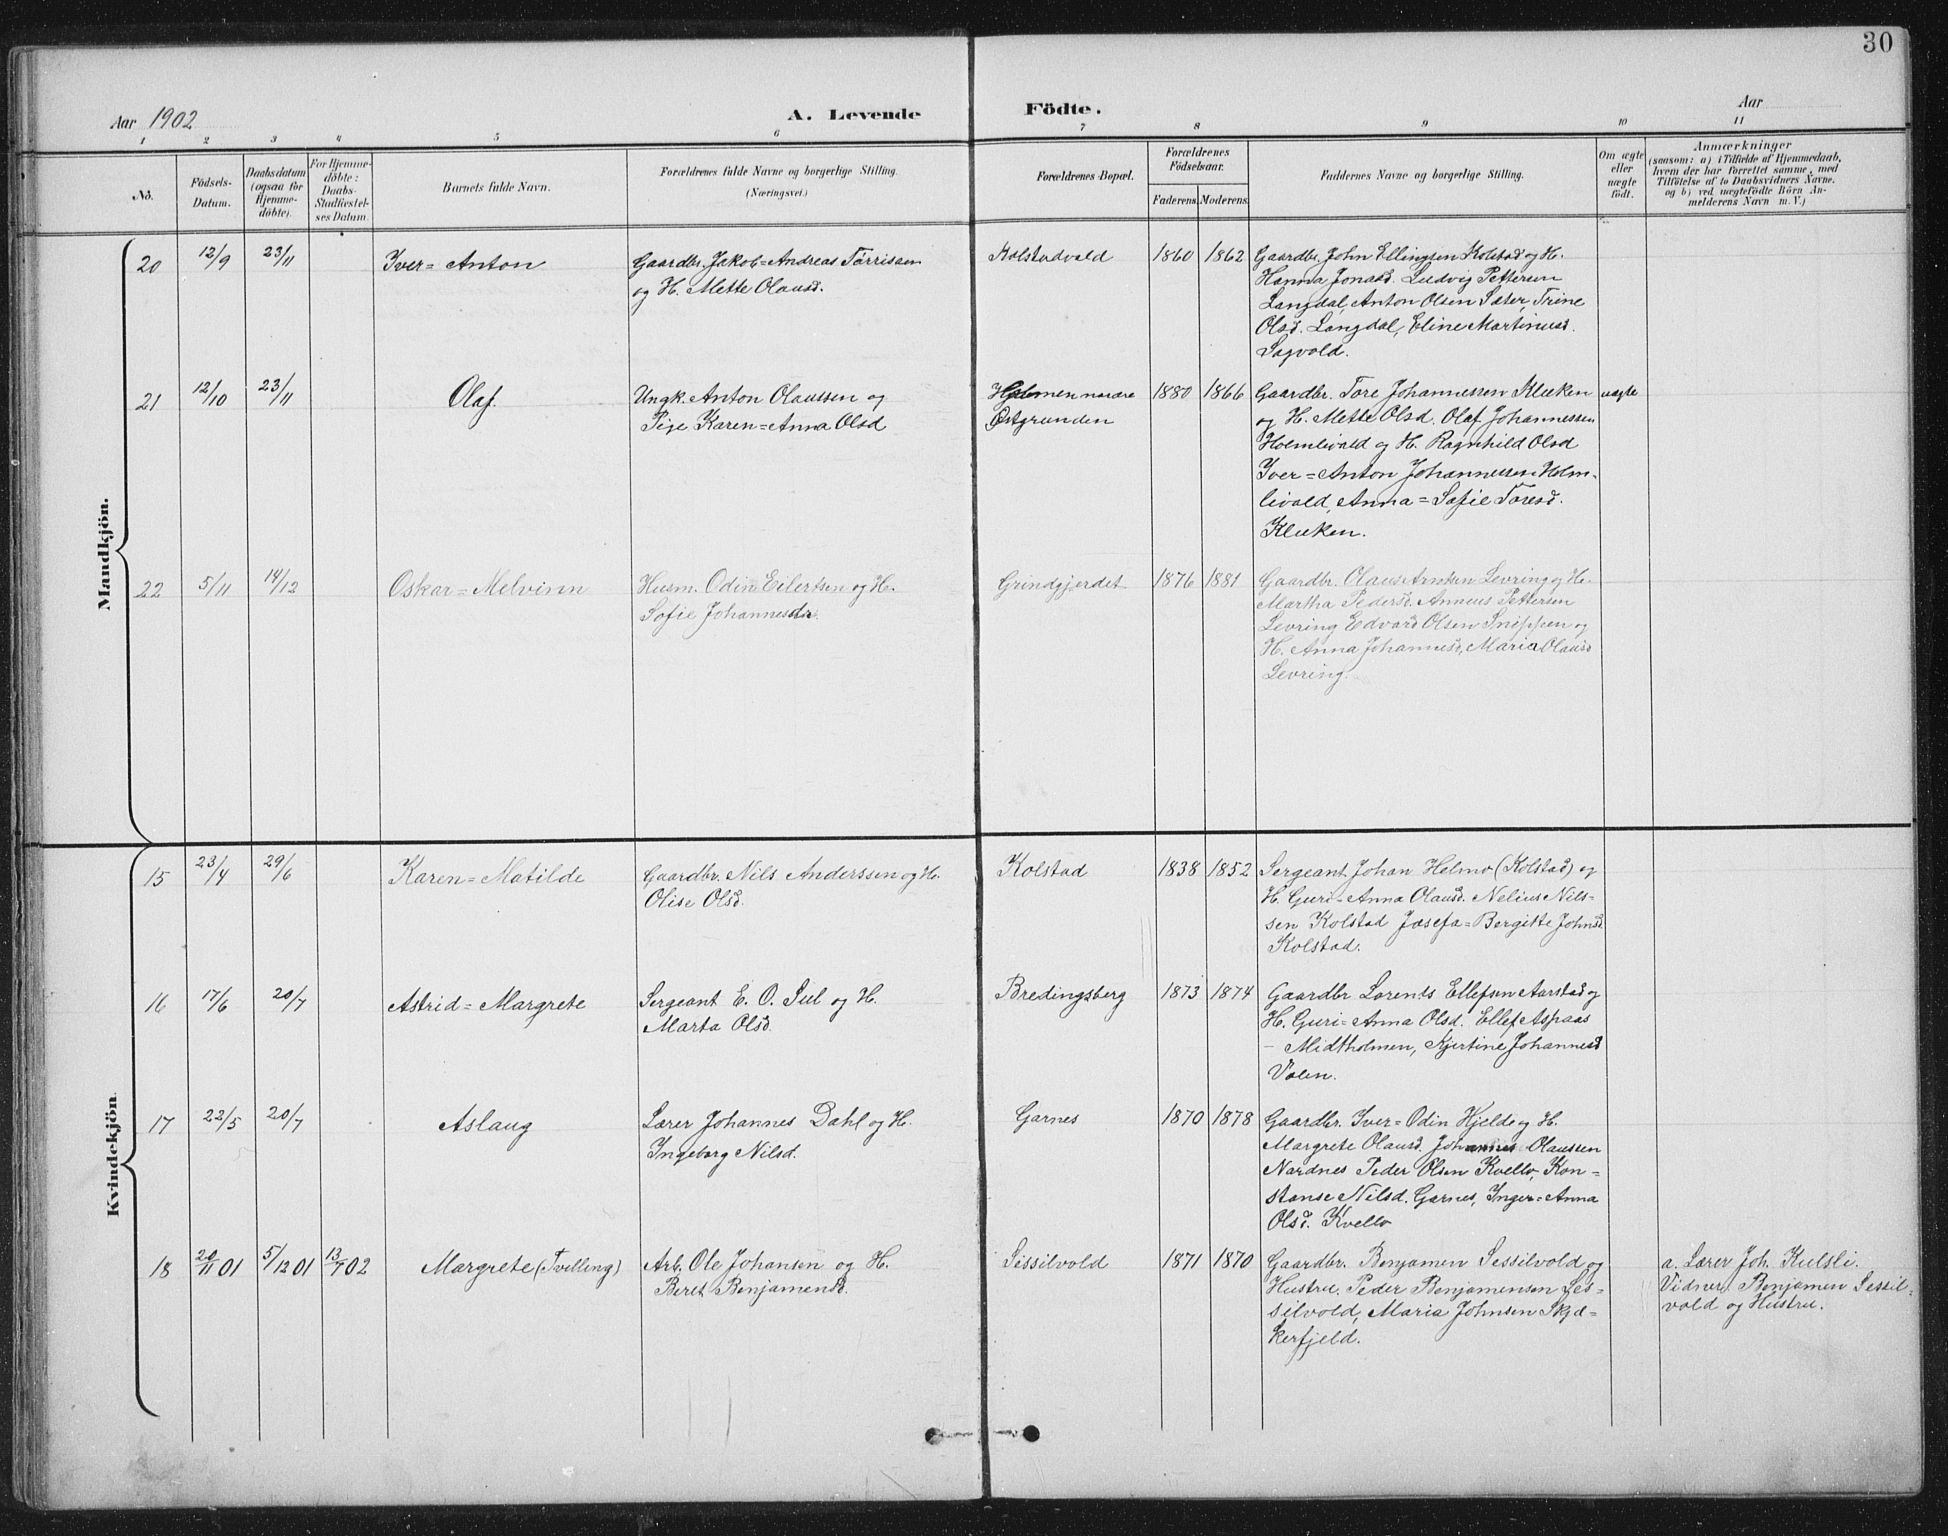 30
Aar 1902
A. Levende Födte.
Aar
1 2 3 4 5 6 7 8 9 10 11
No.
Födsels-Datum.
Daabsdatum (ogsaa for Hjemmedöbte).
For Hjemmedöbte: Daabs-Stadfæstelses Datum.
Barnets fulde Navn.
Forældrenes fulde Navne og borgerlige Stilling. (Næringsvei.)
Forældrenes Bopæl.
Forældrenes Födselsaar.
Faderens. Moderens.
Faddernes Navne og borgerlige Stilling.
Om ægte eller uægte födt.
Anmærkninger
(saasom: a) i Tilfælde af Hjemmedaab,
hvem der har forrettet samme, med
Tilföielse af to Daabsvidners Navne.
og b) ved uægtefödte Börn An-
melderens Navn m. V.)
Mandkjön.
20 12/9 23/11 Iver=Anton
Gaardbr. Jakob=Andreas Tørrisen
og H. Mette Olausd.
Kolstadvald 1860 1862
Gaardbr. John Ellingsen Kolstad og H.
Hanna Jonasd. Ludvig Pettersen
Langdal, Anton Olsen Sæter, Trine
Olsd. Langdal, Eline Martinusd.
Sagvold.
21 12/10 23/11 Olaf.
Ungk. Anton Olaussen og
Pige Karen=Anna Olsd
Holmen nordre
Østgrunden
1880 1866
Gaardbr. Tore Johannessen Kluken
og H. Mette Olsd. Olaf Johannessen
Holmlivald og H. Ragnhild Olsd
Iver=Anton Johannessen Holm-
livald, Anna=Sofie Toresd.
Kluken.
uægte
22 5/11 14/12 Oskar=Melvinn
Husm. Odin Eilertsen og H.
Sofie Johannesdtr.
Grindgjerdet 1876 1881
Gaardbr. Olaus Arntsen Levring og H.
Martha Pedersd. Anneus Pettersen
Levring Edvard Olsen Snippen og
H. Anna Johannesd, Maria Olausd
Levring.
Kvindekjön.
15 23/4 29/6 Karen=Matilde
Gaardbr. Nils Anderssen og H.
Olise Olsd.
Kolstad 1838 1852
Sergeant Johan Helmo (Kolstad) og
H. Guri=Anna Olausd. Nelius Nils-
sen Kolstad Josefa=Bergitte Johnsd
Kolstad.
16 17/6 20/7 Astrid=Margrete
Sergeant E. O. Sul og H.
Marta Olsd.
Bredingsberg 1873 1874
Gaardbr Lorents Ellefsen Aarstad og
H. Guri=Anna Olsd. Ellef Aspaas
- Midtholmen, Kjertine Johannesd
Volen.
17 22/5 20/7 Aslaug
Lærer Johannes Dahl og H.
Ingeborg Nilsd.
Garnes 1870 1878
Gaardbr. Iver=Odin Hjelde og H.
Margrete Olausd. Johannes Olaussen
Nordnes Peder Olsen Kvello, Kon-
stanse Nilsd. Garnes, Inger=Anna
Olsd. Kvello
18 20/11 01 5/12 01 13/7 02 Margrete (Tvilling)
Arb. Ole Johansen og H.
Beret Benjamensd.
Sissilvold 1871 1870
Gaardbr. Benjamen Sessilvold og
Hustru. Peder Benjamensen Ses-
silvold, Maria Johnsen Skjæ-
kerfjeld.
a. Lærer Joh. Kulsli.
Vidner, Benjamen Sessil-
vold og Hustru.